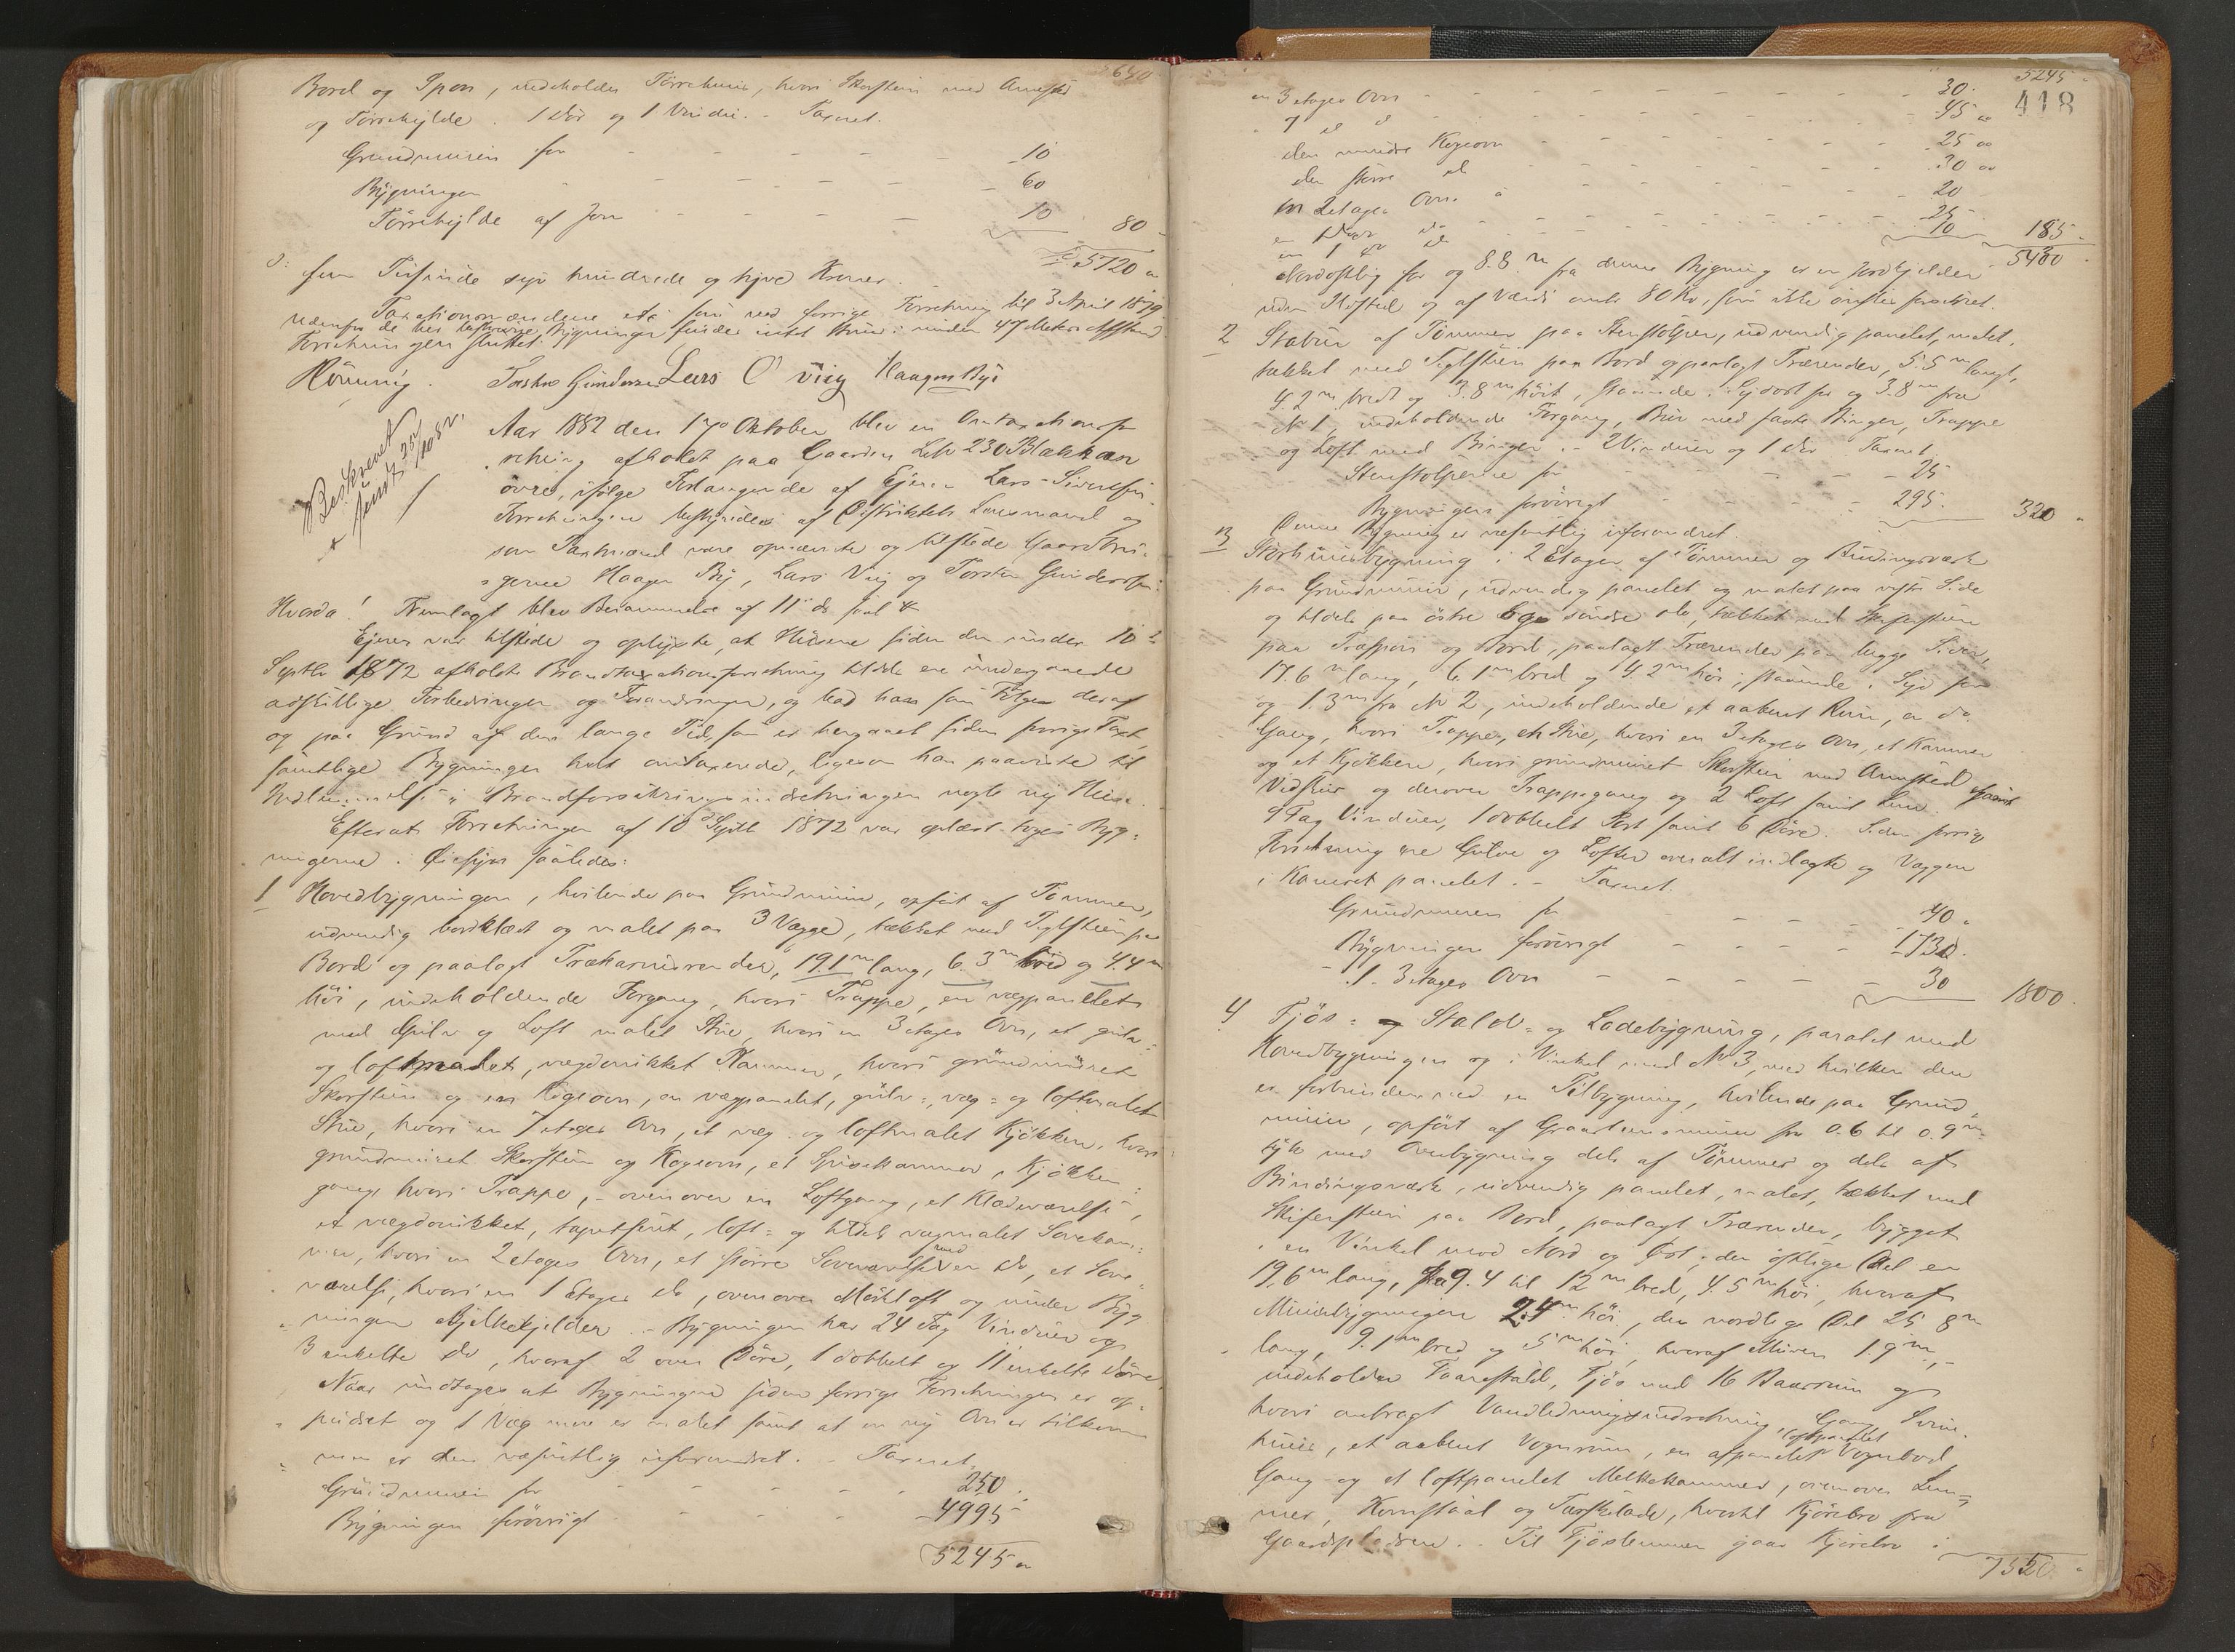 5640
Bord og Spon, indeholder Tørrehuus, hvori Skorsteen med Arnested
og Tørrehylde. 1 Dør og 1 Vindu. - Taxeret.
Grundmuren for - - - - - 10
Bygningen - - - - 60
Tørrehylde af Jern - - - - 10 80 -
5720 "
fem Tusinde syv hundrede og tyve Kroner.
Taxationsmændene som ved forrige Forretning til 3 April 1879.
Udenfor de her beskrevne Bygninger findes intet Huus i under 47 Meters Afstand.
Forretningen sluttet.
Rönning. Torsten Gundersen Lars O Viig Haagen Bye
Beskrevet
sendt 25/10 82.
Aar 1882 den 17de Oktober blev en Omtaxationsfor
retning afholdt paa Gaarden Lbr 230 Blakkan
övre, ifølge Forlangende af Ejeren Lars Sivertsen.
Forretningen bestyredes af Distriktets Lensmand og
som Taxtmænd vare opnævnte og tilstede Gaardbru-
gerne Haagen By, Lars Viig og Torsten Gundersen.
Hvorda! Fremlagt blev Berammelse af 11te ds saal.
Ejeren var tilstede og oplyste, at Husene siden den under 10de
Septbr 1872 afholdte Brandtaxationsforretning tildels ere undergaaede
adskillige Forbedringer og Forandringer, og bad han som Følge deraf
og paa Grund af den lange Tid, som er hengaaet siden forrige Taxt,
samtlige Bygninger helt omtaxerede, ligesom han paaviste til
Indlemmelse i Brandforsikringsindretningen nogle ny Huse.
Efterat Forretningen af 10de Septbr 1872 var oplæst toges Byg-
ningerne i Öiesyn saaledes:
1 Hovedbygningen, hvilende paa Grundmuur, opført af Tømmer,
udvendig bordklædt og malet paa 3 Vægge, tækket med Teglsteen paa
Bord og paalagt Trækarnisrender, 19.1 m lang, 6.3 m bred og 4.4 m
höi, indeholdende Forgang, hvori Trappe, en vægpanelet
med Gulv og Loft malet Stue, hvori en 3 etages Ovn, et gulv-
og loftmalet, vægdonikket Kammer, hvori grundmuret
Skorsteen og en Kogeovn, en vægpanelet, gulv-, væg- og loftmalet
Stue, hvori en 7 etages Ovn, et væg- og loftmalet Kjøkken, hvori
grundmuret Skorsteen og Kogeovn, et Spisekammer, Kjøkken-
gang, hvori Trappe, - ovenover en Loftgang, et Klædeværelse,
et vægdonikket, tapetseret, loft- og tildels vægmalet Sovekam-
mer, hvori en 2 etages Ovn, et større Soveværelse med en do, et Sove-
værelse, hvori en 1 Etages do, ovenover Mørkloft og under Byg-
ningen Mjelkekjelder. - Bygningen har 24 Fag Vinduer og
3 enkelte do, hvoraf 2 over Døre, 1 dobbelt og 11 enkelte Døre.
Naar undtages at Bygningen siden forrige Forretning er op-
pudset og 1 Væg mere er malet samt at en ny Ovn er tilkom-
men er den væsentlig uforandret. - Taxeret.
Grundmuren for - - - - - 250
Bygningen forøvrigt - - - - 4995 -
5245 "
5245 -
418
en 3 etages Ovn - - - - - 30.
" 7 d d - - - - - 45 "
den mindre Kogeovn - - - - - 25 "
den større d - - - - - 30 "
en 2 etages Ovn - - - - - 20
- - - - - 25
en 1 - - - - - 10 185 -
5430 -
Nordostlig for og 8.8 m fra denne Bygning er en Jordkjelder
uden Ildsted og af Værdi omtr 80 Kr, som ikke ønskes forsikret.
2 Stabur af Tømmer paa Stenstolper, udvendig panelet, malet,
tækket med Teglsteen paa Bord og paalagt Trærender, 5.5 m langt,
4.2 m bredt og 3.8 m höit, staaende i Sydost for og 3.8 m fra
No 1, indeholdende Forgang, Bur med faste Binger, Trappe
og Loft med Binger. - 2 Vinduer og 1 Dør. Taxeret.
Stenstolperne for - - - - 25
Bygningen forøvrigt - - - - 295. 320 "
Denne Bygning er væsentlig uforandret.
3 Størhuusbygning i 2 Etager af Tømmer og Bindingsværk
paa Grundmuur, udvendig panelet og malet paa vestre Side
og tildels paa östre og söndre do, tækket med Skifersteen
paa Træspon og Bord, paalagt Trærender paa begge Sider,
17.6 m lang, 6.1 m bred og 4.2 m höi, staaende i Syd for
og 1.3 m fra No 2, indeholdende et aabent Rum, en do
Gang, hvori Trappe, en Stue, hvori en 3 etages Ovn, et Kammer
og et Kjøkken, hvori grundmuret Skorsteen med Arnested samt
Vedskur og derover Trappegang og 2 Loft samt Lem.
9 Fag Vinduer, 1 dobbelt Port samt 6 Døre. Siden forrige
Forretning ere Gulve og Lofter overalt indlagte og Væggen
i Kammeret panelet. - Taxeret.
Grundmuren for - - - - 40 "
Bygningen forøvrigt - - - - 1730.
1 3 etages Ovn - - - - - 30 1800.
4 Fjös- Stald- og Ladebygning, paralel med
Hovedbygningen og i Vinkel med No 3, med hvilken den
er forbunden ved en Tilbygning, hvilende paa Grund-
muur, opført af Graasteensmuur fra 0.6 til 0.9 m
tyk med Overbygning dels af Tømmer og dels af
Bindingsværk, udvendig panelet, malet, tækket med
Skifersteen paa Bord, paalagt Trærender, bygget
i en Vinkel mod Nord og Öst, den östlige Del er
19.6 m lang, fra 9.4 til 12 m bred, 4.5 m höi, hvoraf
Muurbygningen 2.4 m höi, den nordlige Del 25.8 m
lang, 9.1 m bred og 5 m höi, hvoraf Muren 1.9 m,
indeholder Faarestald, Fjös med 16 Baasrum og
hvori anbragt Vandledningsindretning, Gang, Sviin-
huus, et aabent Vognrum, en afpanelet loftpanelet Vognbod,
Gang og et loftpanelet Melkekammer, ovenover Lem-
mer, Kornstaal og Tærskelade, hvortil Kjörebro fra
Gaardspladsen. - Til Fjöslemmen gaar Kjörebro i
7550 "